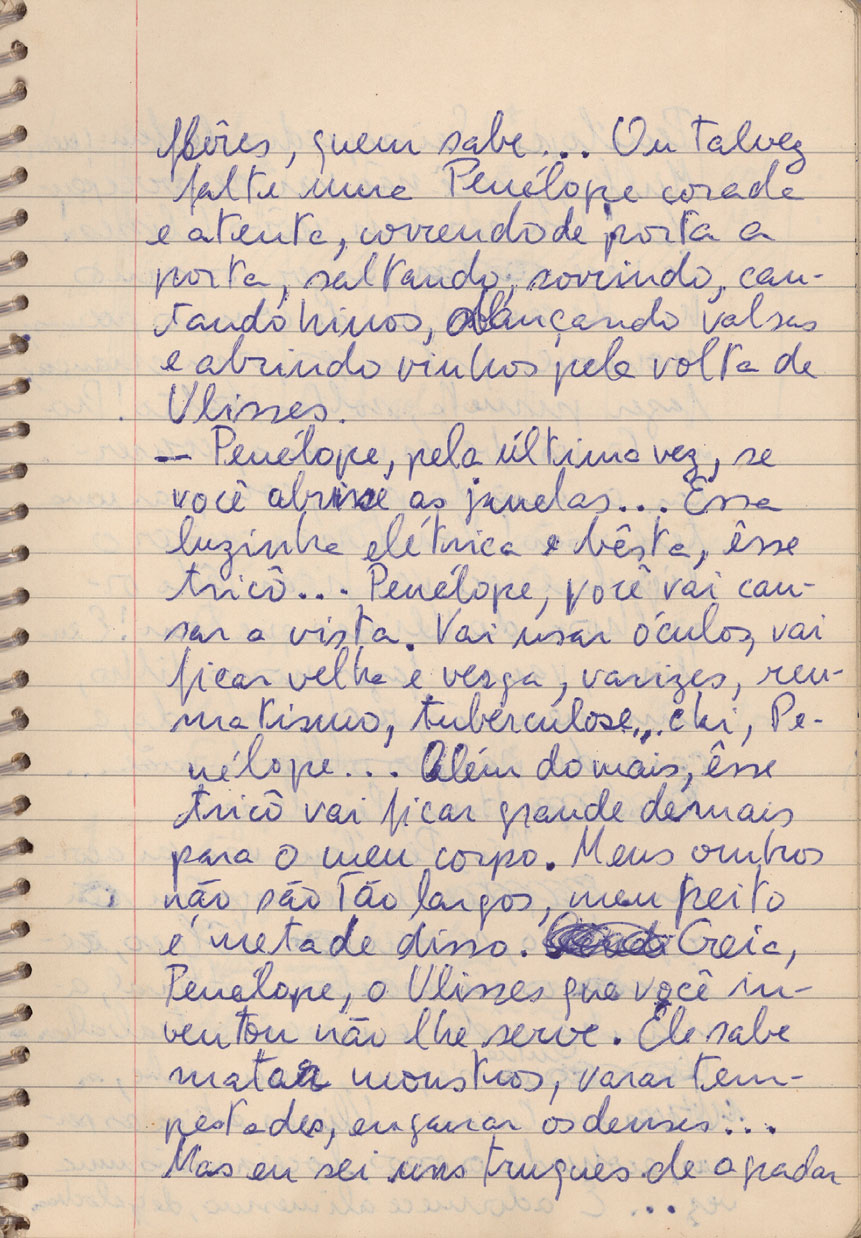 flôres, quem sabe... Ou talvez
falte uma Penélope corada
e atenta, correndo de porta a
porta, saltando, sorrindo, can-
tando hinos, dançando valsas
e abrindo vinhos pela volta de
Ulisses.
— Penélope, pela última vez, se
você abrisse as janelas... Essa
luzinha elétrica e bêsta, êsse
tricô... Penélope, você vai can-
sar a vista. Vai usar óculos, vai
ficar velha e vesga, varizes, reu-
matismo, tuberculose... chi, Pe-
nélope... Além do mais, êsse
tricô vai ficar grande demais
para o meu corpo. Meus ombros
não são tão largos, meu peito
é metade disso. Creia,
Penélope, o Ulisses que você in-
ventou não lhe serve. Êle sabe
matar monstros, varar tem-
pestades, enganar os deuses...
Mas eu sei uns truques de agradar